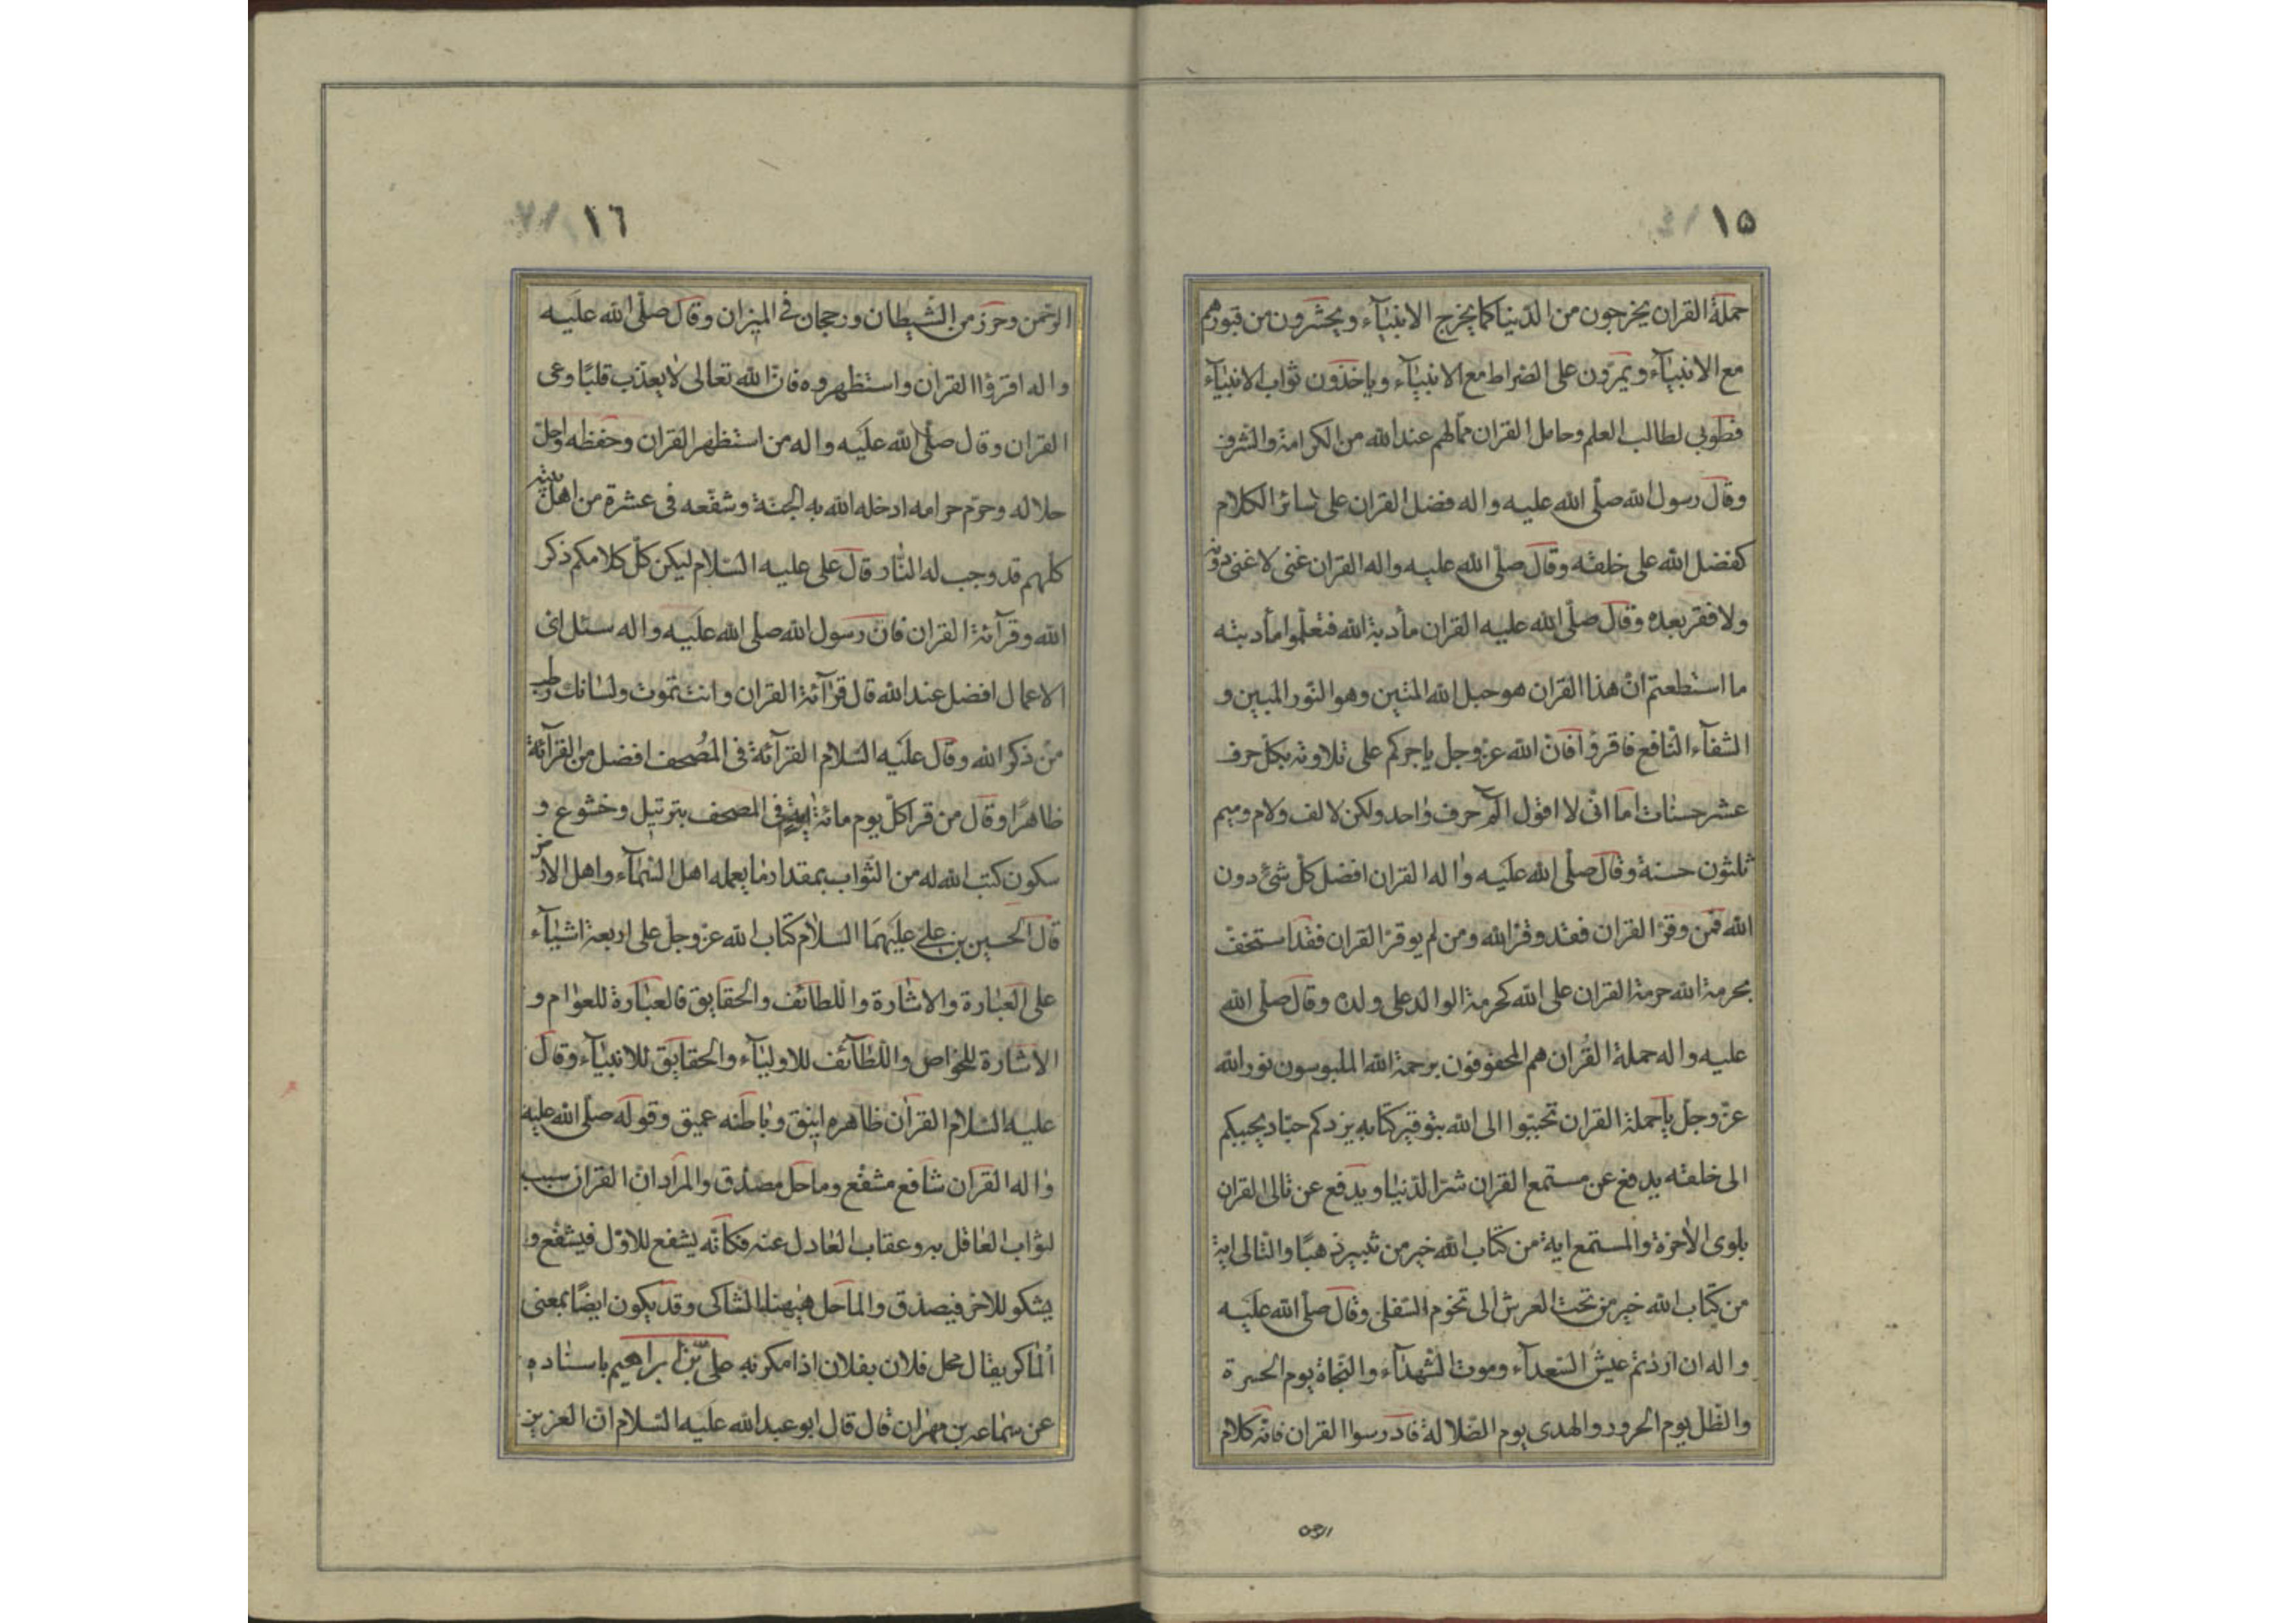 ١٥
حملة القران يخرجون من الدنيا كما يخرج الانبيآء ويحشرون من قبورهم
مع الانبيآء ويمرّون على الصراط مع الانبيآء وياخذون ثواب الانبيآء
فطوبى لطالب العلم وحامل القران ممالهم عند الله من الكرامة والشرف
وقال رسول الله صلّى الله عليه واله فضل القران على سائر الكلام
كفضل الله على خلقه وقال صلّى الله عليه واله القران غنى لا غنى دونه
ولا فقر بعده وقال صلّى الله عليه القران مأدبة الله فتعلّموا مأدبته
ما استطعتم انّ هذا القران هو حبل الله المتين وهو النّور المبين و
الشفآء النّافع فاقرؤا فانّ الله عزّوجل ياجركم على تلاوته بكلّ حرف
عشر حسنات اما انّى لا اقول الم حرف واحد ولكن لا لف ولام وميم
ثلثون حسنة وقال صلّى الله عليه واله القران افضل كلّ شئ دون
الله فمن وقّر القران فقد وقّر الله ومن لم يوقر القران فقد استخفّ
بحرمة الله حرمة القران على الله كحرمة الوالد على ولده وقال صلّى الله
عليه واله حملة القران هم المحفوفون برحمة الله الملبوسون نور الله
عزّ وجلّ يا حملة القران تحببّوا الى الله بتوقير كتابه يزدكم حبّا ويحببكم
الى خلقه يدفع عن مستمع القران شرّ الدّنيا ويدفع عن تالى القران
بلوى الاخرة والمستمع اية من كتاب الله خير من ثبير ذهبًا والتّالى اية
من كتاب الله خير من تحت العرش الى تخوم السّفلى وقال صلّى الله عليه
واله ان اردتم عيش السّعدآء وموت الشّهدآء والنّجاة يوم الحسرة
والظّل يوم الحرور والهدى يوم الضّلالة فادرسوا القران فانّه كلام
الرحمن
١٦
الرّحمن وحرز من الشّيطان ورجحان فى الميزان وقال صلّى الله عليه
واله اقرؤا القران واستظهروه فانّ الله تعالى لا يعذّب قلبًا وعى
القران وقال صلّى الله عليه واله من استظهر القران وحفظه واحلّ
حلاله وحرّم حرامه ادخله الله به الجنّة وشفّعه فى عشرة من اهل بيته
كلّهم قد وجب له النّار قال على عليه السّلام ليكن كلّ كلامكم ذكر
الله وقرآئة القران فانّ رسول الله صلى الله عليه واله سئل اىّ
الاعمال افضل عند الله قال قرآئة القران وانت تموت ولسانك رطب
من ذكر الله وقال عليه السّلام القرآئة فى المصحف افضل من القرآئة
ظاهرًا وقال من قرا كلّ يوم مائة اية فى المصحف بترتيل وخشوع و
سكون كتب الله له من الثّواب بمقدار ما يعمله اهل السّمآء واهل الارض
قال الحسين بن على عليهما السّلام كتاب الله عزّوجلّ على اربعة اشيآء
على العبارة والاشارة واللطائف والحقايق فالعبارة للعوام و
الاشارة للخواص واللّطآئف للاوليآء والحقايق للانبيآء وقال
عليه السّلام القران ظاهره انيق وباطنه عميق وقوله صلّى الله عليه
واله القران شافع مشفّع وماحل مصدّق والمراد انّ القران سبب
لثواب العاقل به وعقاب العادل عنه فكانّه يشفع للاوّل فيشفّع و
يشكو للاخر فيصدّق والماحل هيهنا الشاكى وقد يكون ايضًا بمعنى
الماكر يقال محل فلان بفلان اذا مكر به علىّ بن ابراهيم باسناده
عن سماعه بن مهران قال قال ابو عبد الله عليه السّلام انّ العزيز